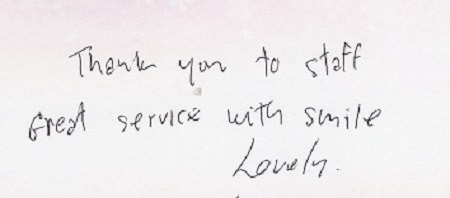 Thank you to staff
Great service with smile
Lovely.